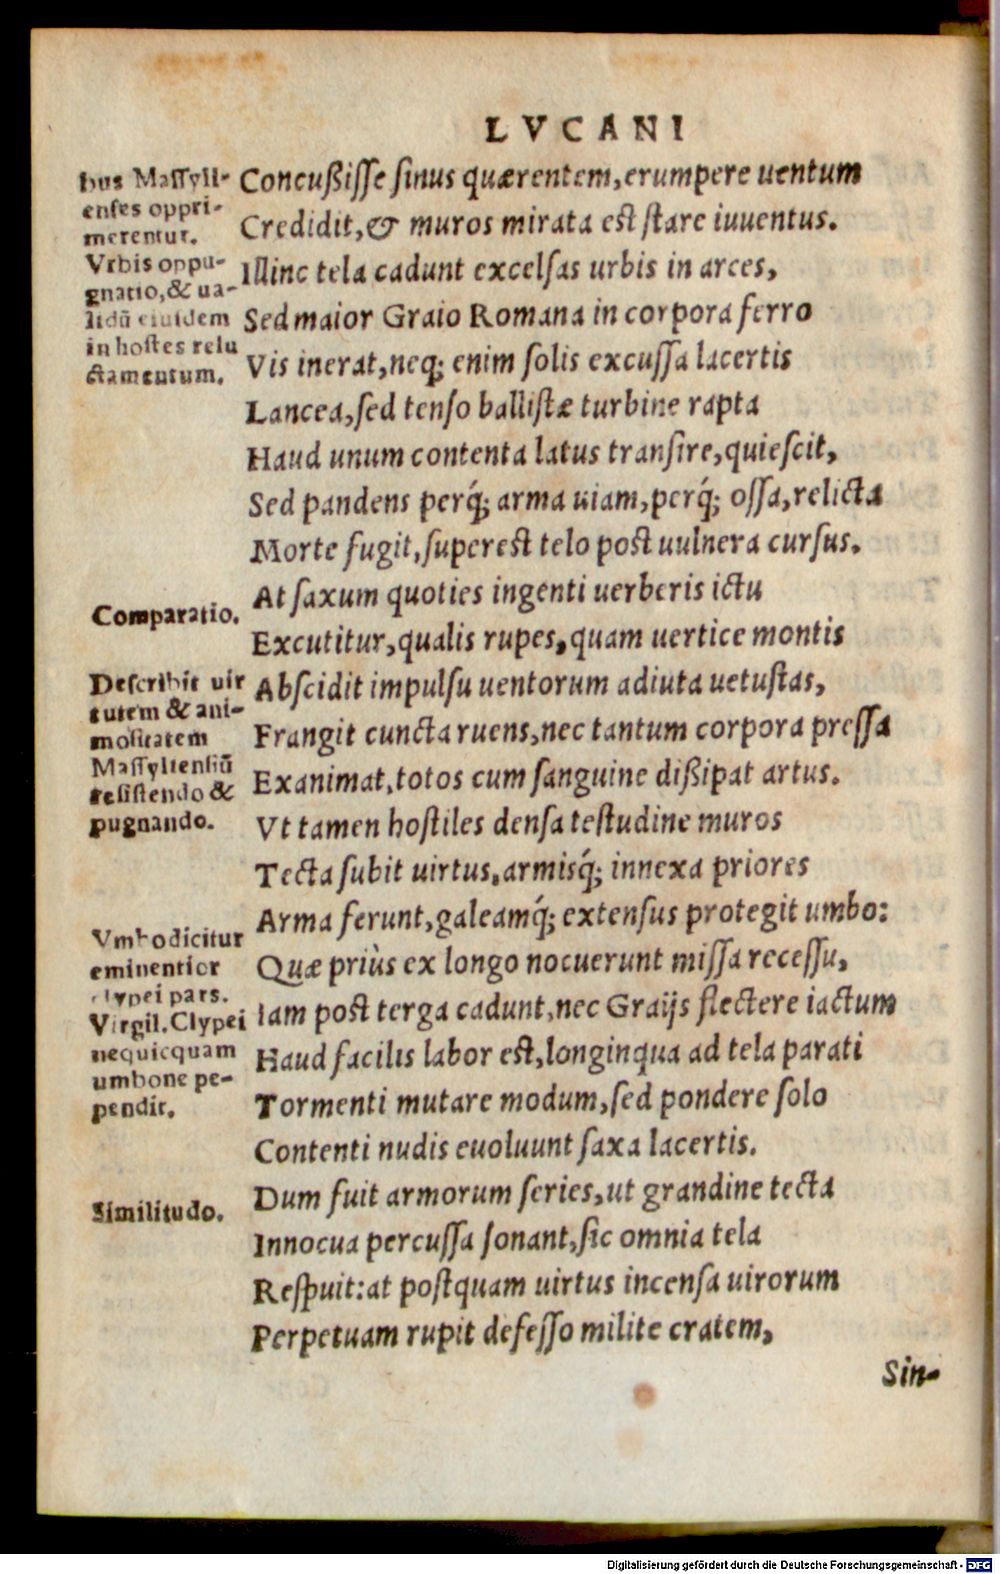 LVCANI
bus Massyli-
enses oppri-
merentur.
Vrbis oppu-
gnatio, & ua-
lidū eiusdem
in hostes relu
ctamentum.
Concußisse sinus quærentem, erumpere uentum
Credidit, & muros mirata est stare iuuentus.
Illinc tela cadunt excelsas urbis in arces,
Sed maior Graio Romana in corpora ferro
Vis inerat, neq; enim solis excussa lacertis
Lancea, sed tenso ballistæ turbine rapta
Haud unum contenta latus transire, quiescit,
Sed pandens perq́; arma uiam, perq́; ossa, relicta
Morte fugit, superest telo post uulnera cursus.
Comparatio.
At saxum quoties ingenti uerberis ictu
Excutitur, qualis rupes, quam uertice montis
Describit uir
tutem & ani-
mositatem
Massyliensiū
resistendo &
pugnando.
Abscidit impulsu uentorum adiuta uetustas,
Frangit cuncta ruens, nec tantum corpora pressa
Exanimat, totos cum sanguine dißipat artus.
Vt tamen hostiles densa testudine muros
Tecta subit uirtus, armisq́; innexa priores
Arma ferunt, galeamq́; extensus protegit umbo:
Vmbo dicitur
eminentior
clypei pars.
Virgil. Clypei
nequicquam
umbone pe-
pendit.
Quæ priùs ex longo nocuerunt missa recessu,
Iam post terga cadunt, nec Graijs flectere iactum
Haud facilis labor est, longinqua ad tela parati
Tormenti mutare modum, sed pondere solo
Contenti nudis euoluunt saxa lacertis.
Similitudo.
Dum fuit armorum series, ut grandine tecta
Innocua percussa sonant, sic omnia tela
Respuit: at postquam uirtus incensa uirorum
Perpetuam rupit defesso milite cratem,
Sin-
Digitalisierung gefördert durch die Deutsche Forschungsgemeinschaft - DFG